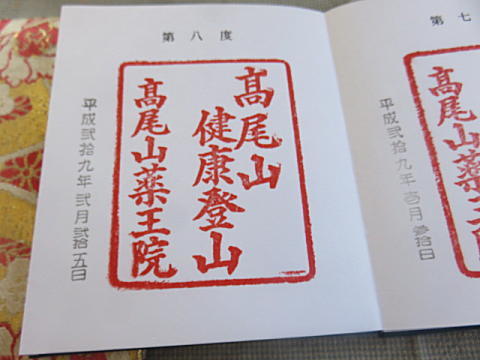 第八度
髙尾山
健康登山
髙尾山薬王院
平成弐拾九年弐月弐拾五日
第七
髙尾山薬王院
平成弐拾九年壱月参拾日